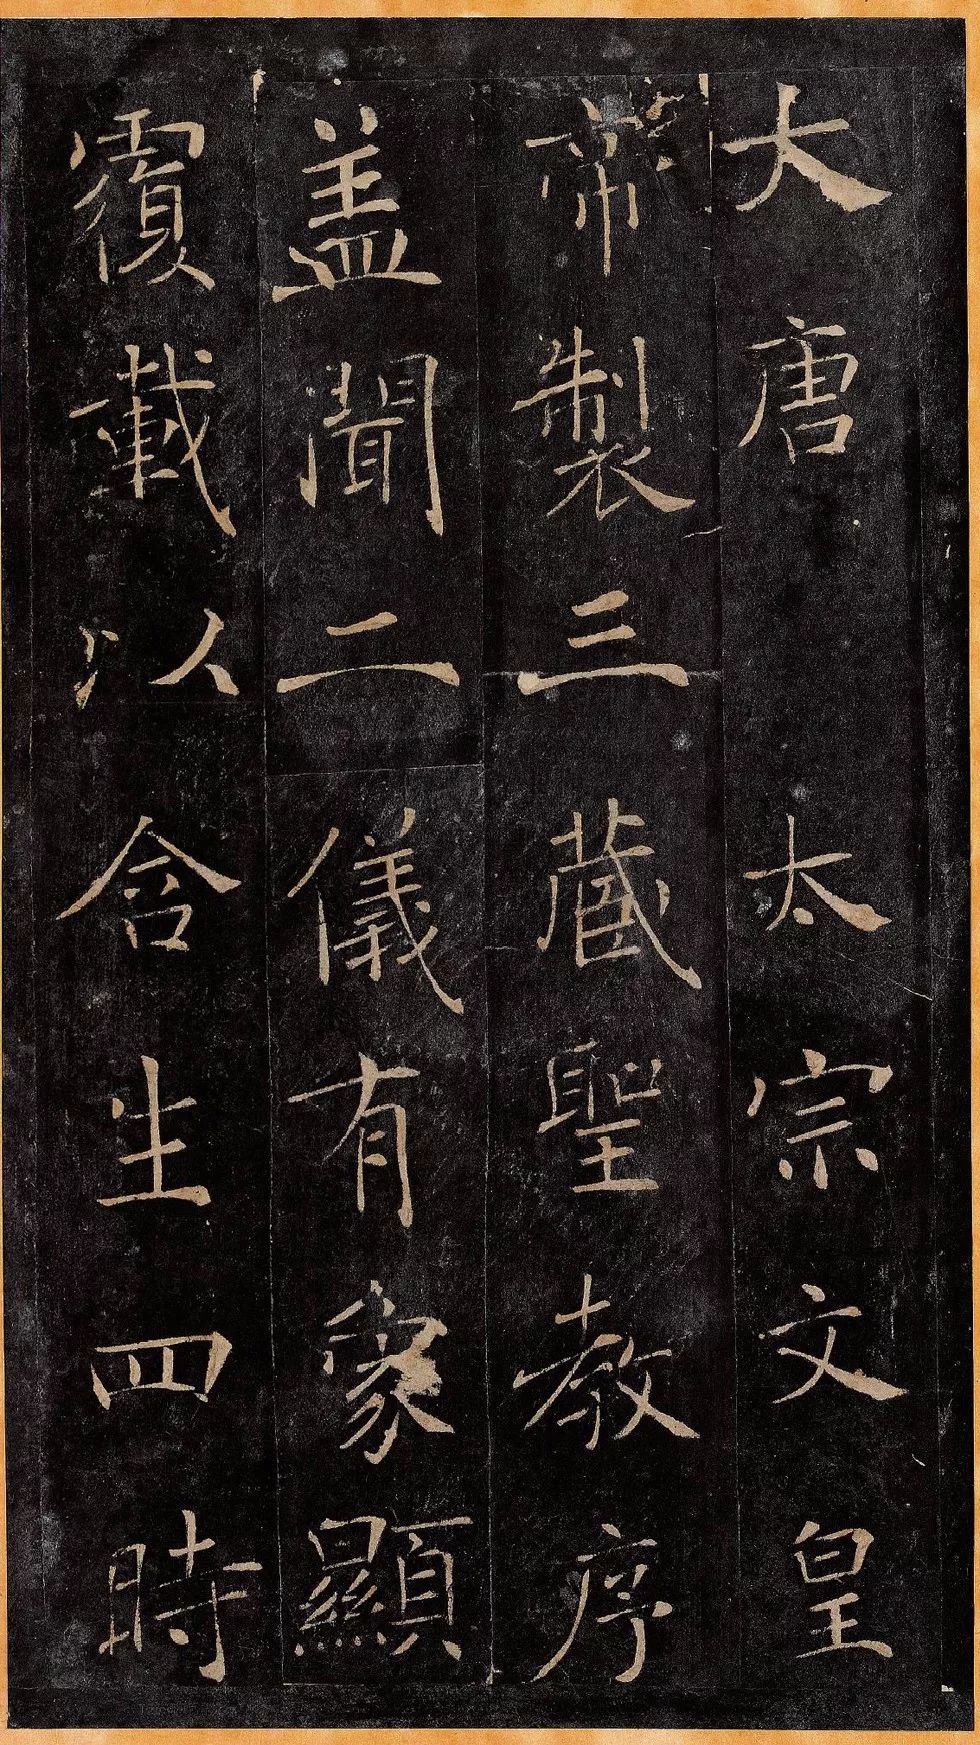 大唐 太宗文皇
帝製三藏聖教序
盖聞二儀有象顯
覆載以含生四時